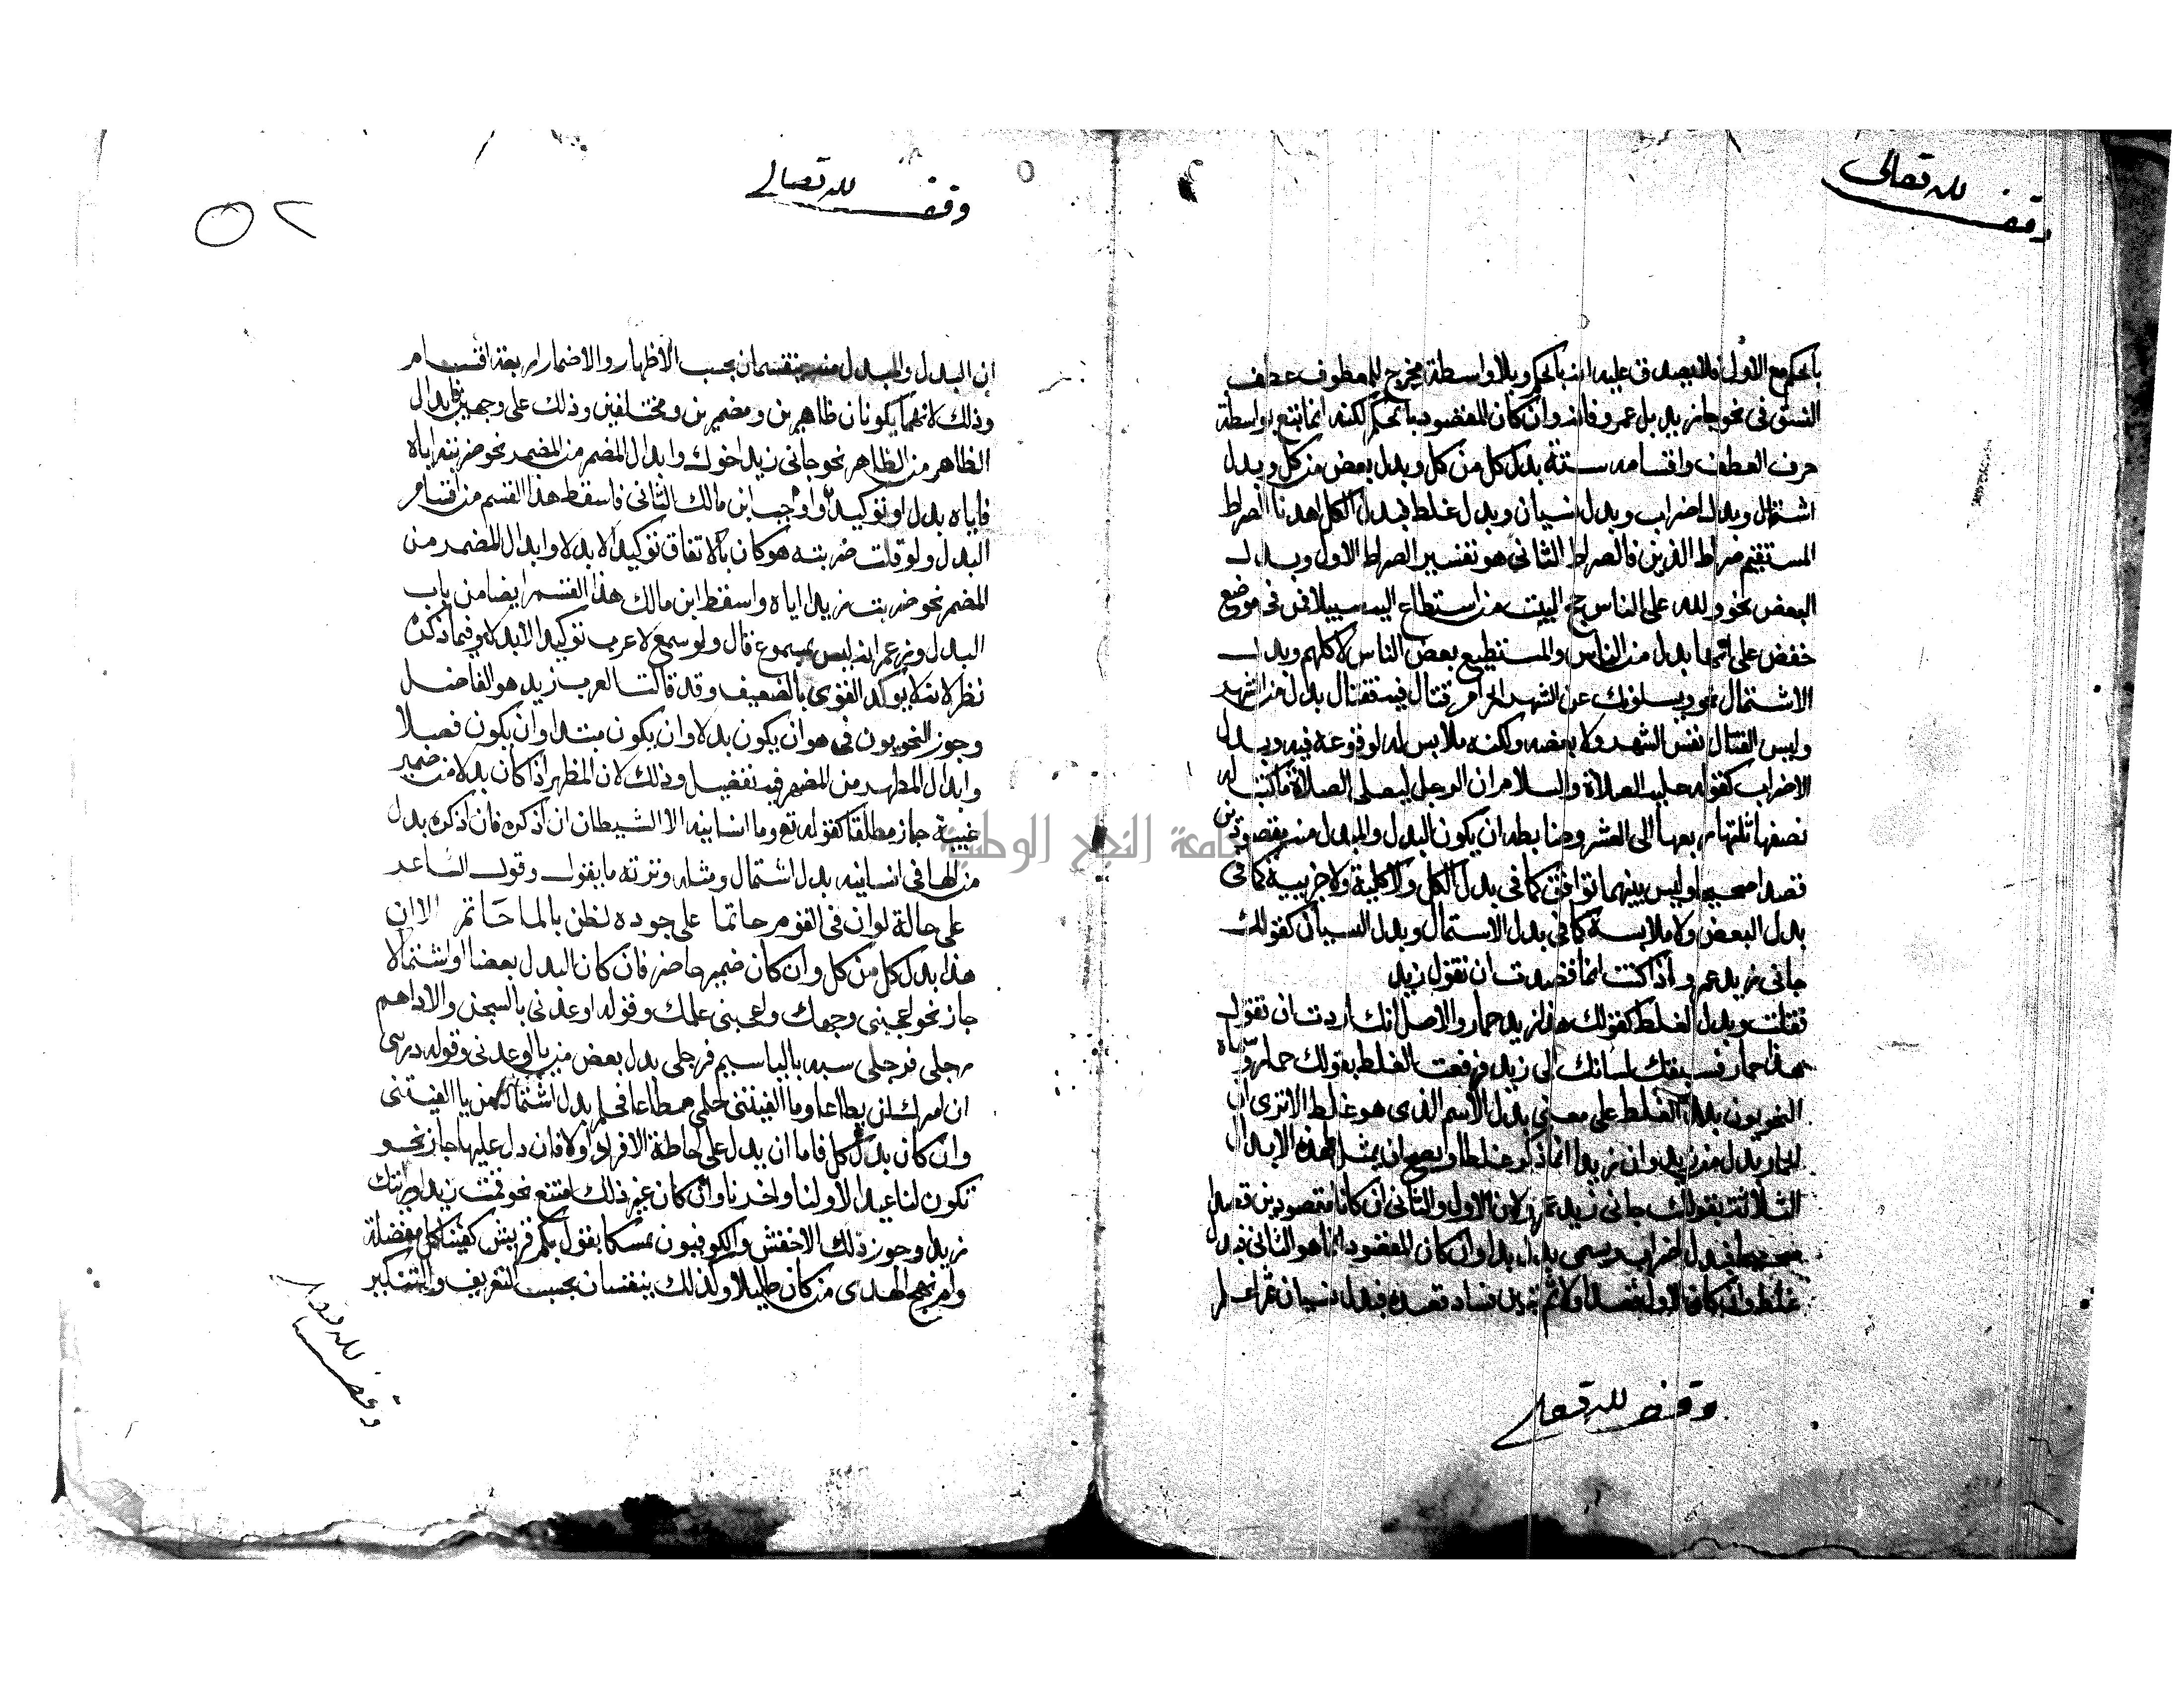 وقف لله تعالى
بالحكم مع الاول فلا يصدق عليه انه بالحكم وبلا واسطة مخرج للمعطوف عطف
النسق في نحو جا زيد بل عمرو فانه وان كان المقصود بالحكم لكنه انما يتبع بواسطة
حرف العطف واقسامه ستة بدل كل من كل وبدل بعض من كل وبدل
اشتمال وبدل اضراب وبدل نسيان وبدل غلط فبدل الكل اهدنا الصراط
المستقيم صراط الذين فالصراط الثاني هو نفس الصراط الاول وبدل
البعض نحو ولله على الناس حج البيت من استطاع اليه سبيلا فمن في موضع
خفض على انها بدل من الناس والمستطيع بعض الناس لا كلهم وبدل
الاشتمال نحو ويسلونك عن الشهر الحرام قتال فيه فقتال بدل من الشهر
وليس القتال نفس الشهر ولا بعضه ولكنه ملابس له لوقوعه فيه وبدل
الاضراب كقوله عليه الصلاة والسلام ان الرجل ليصلي الصلاة ما كتب له
نصفها ثلثها ربعها الى العشر وضابطه ان يكون البدل والمبدل منه مقصودين
قصدا صحيحا وليس بينهما توافق كما في بدل الكل ولا كلية ولا جزيية كما في
بدل البعض ولا ملابسة كما في بدل الاشتمال وبدل النسيان كقولك
جاني زيد عمرو اذا كنت انما قصدت ان تقول زيد
فقلت وبدل الغلط كقولك هذا زيد حمار والاصل انك اردت ان تقول
هذا حمار فسبقك لسانك الى زيد فرفعت الغلط بقولك حمار وسماه
النحويون بدل الغلط على معنى بدل الاسم الذي هو غلط الا ترى ان
الحمار بدل من زيد وان زيدا انما ذكر غلطا ويصح ان يمثل لهذه الابدال
الثلاثة بقولك جاني زيد عمرو لان الاول والثاني ان كانا مقصودين قصدا
صحيحا فبدل اضراب ويسمى بدل بدا وان كان المقصود انما هو الثاني فبدل
غلط وان كان الاول قصد اولا ثم تبين فساد قصده فبدل نسيان ثم اعلم
وقف لله تعالى
وقف لله تعالى
٥٢
ان البدل والمبدل منه ينقسمان بحسب الاظهار والاضمار اربعة اقسام
وذلك لانهما يكونان ظاهرين ومضمرين ومختلفين وذلك على وجهين فابدال
الظاهر من الظاهر نحو جاني زيد اخوك وابدال المضمر من المضمر نحو ضربته اياه
فاياه بدل او توكيد واوجب ابن مالك الثاني فاسقط هذا القسم من اقسام
البدل ولو قلت ضربته هو كان بالاتفاق توكيدا لا بدلا وابدال المضمر من
المضمر نحو ضربت زيدا اياه واسقط ابن مالك هذا القسم ايضا من باب
البدل وزعم انه ليس بمسموع قال ولو سمع لاعرب توكيدا لا بدلا وفيما ذكره
نظر لانه لا يوكد القوي بالضعيف وقد قالت العرب زيد هو الفاضل
وجوز النحويون في هو ان يكون بدلا وان يكون مبتدا وان يكون فصلا
وابدال المظهر من المضمر فيه تفصيل وذلك لان المظهر اذا كان بدلا من ضمير
غيبة جاز مطلقا كقوله تع وما انسانيه الا الشيطان ان اذكره فان اذكره بدل
من الها في انسانيه بدل اشتمال ومثله ونرثه ما يقول وقول الشاعر
على حالة لو ان في القوم حاتما على جوده لظن بالما حاتم الا ان
هذا بدل كل من كل وان كان ضمير حاضر فان كان البدل بعضا او اشتمالا
جاز نحو اعجبني وجهك واعجبني علمك وقوله اوعدني بالسجن والاداهم
رجلي فرجلي بدل بعض من يا اوعدني وقوله ذريني
ان امرك لن يطاعا وما الفيتني حلمي مضاعا فحلمي بدل اشتمال من يا الفيتني
وان كان بدل كل فاما ان يدل على احاطة الافراد اولا فان دل عليها جاز نحو
تكون لنا عيدا لاولنا واخرنا وان كان غير ذلك امتنع نحو قمت زيد ورايتك
زيد وجوز ذلك الاخفش والكوفيون تمسكا بقول بكم قريش كفينا كل معضلة
وام نهج الهدى من كان ضليلا وكذلك ينقسمان بحسب التعريف والتنكير
وقف لله
جامعة النجاح الوطنية